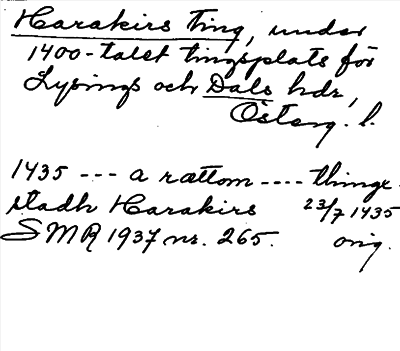 Harakirs ting, under
1400-talet tingsplats för
Lysings och Dals hdr,
Österg. l.
1435 --- a rættom ---- thinge
stadh Harakirs 23/7 1435
SMR 1937 nr. 265. orig.